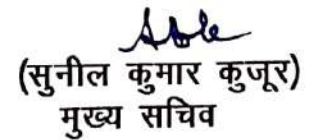 (सुनील कुमार कुजूर)
मुख्य सचिव